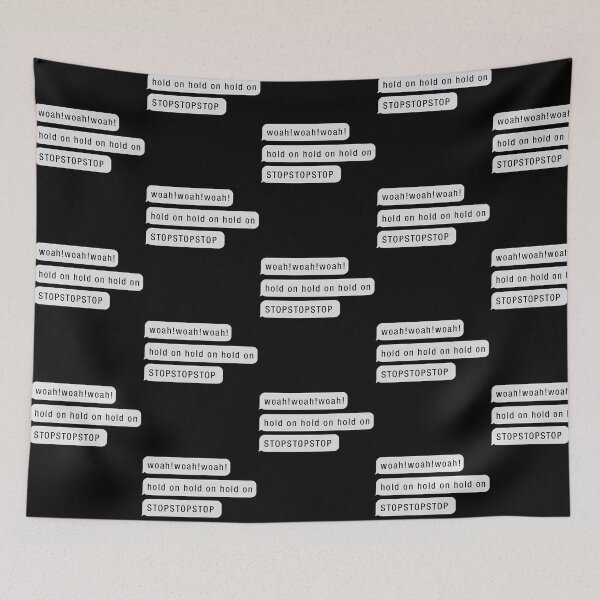 hold on hold on hold on
STOPSTOPSTOP
hold on hold on hold on
STOPSTOPSTOP
woah!woah!woah!
hold on hold on hold on
STOPSTOPSTOP
woah!woah!woah!
hold on hold on hold on
STOPSTOPSTOP
woah!woah!woah
hold on hold on h
STOPSTOPSTOP
woah!woah!woah!
hold on hold on hold on
STOPSTOPSTOP
woah!woah!woah!
hold on hold on hold on
STOPSTOPSTOP
woah!woah!woah!
hold on hold on hold on
STOPSTOPSTOP
woah!woah!woah!
hold on hold on hold on
STOPSTOPSTOP
woah!woah!woa
hold on hold on h
STOPSTOPSTOP
woah!woah!woah!
hold on hold on hold on
STOPSTOPSTOP
woah!woah!woah!
hold on hold on hold on
STOPSTOPSTOP
woah!woah!woah!
hold on hold on hold on
STOPSTOPSTOP
woah!woah!woah!
hold on hold on hold on
STOPSTOPSTOP
woah!woah!woa
hold on hold on h
STOPSTOPSTOP
woah!woah!woah!
hold on hold on hold on
STOPSTOPSTOP
woah!woah!woah!
hold on hold on hold on
STOPSTOPSTOP